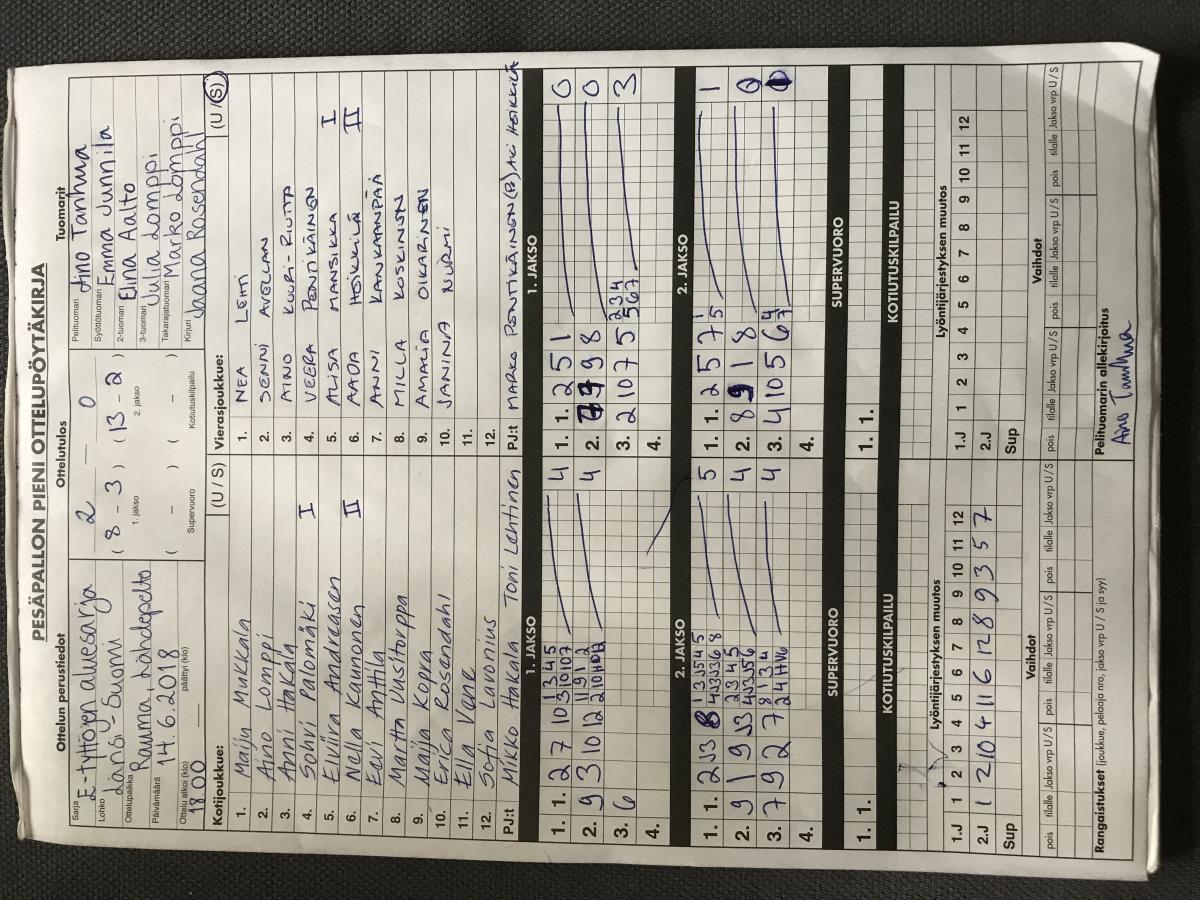 PESÄPALLON PIENI OTTELUPÖYTÄKIRJA
Ottelun perustiedot
Sarja
E-tyttöjen aluesarja
Lohko
Länsi-Suomi
Ottelupaikka
Rauma, Lähdepelto
Päivämäärä
14.6.2018
Ottelu alkoi (klo) päättyi (klo)
18.00
Ottelutulos
2 — 0
( 8 – 3 ) ( 13 – 2 )
1. jakso 2. jakso
( – ) ( – )
Supervuoro Kotiutuskilpailu
Tuomarit
Pelituomari Aino Tanhua
Syöttötuomari Emma Junnila
2-tuomari Elina Aalto
3-tuomari Julia Lomppi
Takarajatuomari Marko Lomppi
Kirjuri Jaana Rosendahl
Kotijoukkue: (U / S)
1. Maiju Mukkala
2. Aino Lomppi
3. Anni Hakala
4. Sohvi Palomäki I
5. Elviira Andreasen
6. Nella Kaunonen II
7. Eevi Anttila
8. Martta Uusitorppa
9. Maija Kopra
10. Erica Rosendahl
11. Ella Vane
12. Sofia Lavonius
PJ:t Mikko Hakala Toni Lehtinen
Vierasjoukkue: (U / S)
1. NEA LEHTI
2. SENNI AVELLAN
3. AINO KUURI-RIUTTA
4. VEERA PENTIKÄINEN
5. ALISA MANSIKKA I
6. AADA HEIKKILÄ II
7. ANNI KANKAANPÄÄ
8. MILLA KOSKINEN
9. AMALIA OIKARINEN
10. JANINA NURMI
11.
12.
PJ:t MARKO PENTIKÄINEN AKI HEIKKILÄ
1. JAKSO
1. 1. 2 7 10 4
2. 9 3 10 12 4
3. 6
4.
1. JAKSO
1. 1. 2 5 1 0
2. 9 8 0
3. 2 10 7 5 2 3 4 5 6 7 3
4.
2. JAKSO
1. 1. 2 5
2. 9 1 9 4
3. 7 9 2 7 4
4.
2. JAKSO
1. 1. 2 5 7 1
2. 8 1 8 0
3. 4 10 5 6
4.
SUPERVUORO
1. 1.
SUPERVUORO
1. 1.
KOTIUTUSKILPAILU
KOTIUTUSKILPAILU
Lyöntijärjestyksen muutos
1 2 3 4 5 6 7 8 9 10 11 12
1.J
2.J 1 2 10 4 11 6 12 8 9 3 5 7
Sup
Lyöntijärjestyksen muutos
1 2 3 4 5 6 7 8 9 10 11 12
1.J
2.J
Sup
Vaihdot
pois tilalle Jakso vrp U / S pois tilalle Jakso vrp U / S pois tilalle Jakso vrp U / S
Vaihdot
pois tilalle Jakso vrp U / S pois tilalle Jakso vrp U / S pois tilalle Jakso vrp U / S
Rangaistukset (joukkue, pelaaja nro, jakso vrp U / S ja syy)
Pelituomarin allekirjoitus
Aino Tanhua